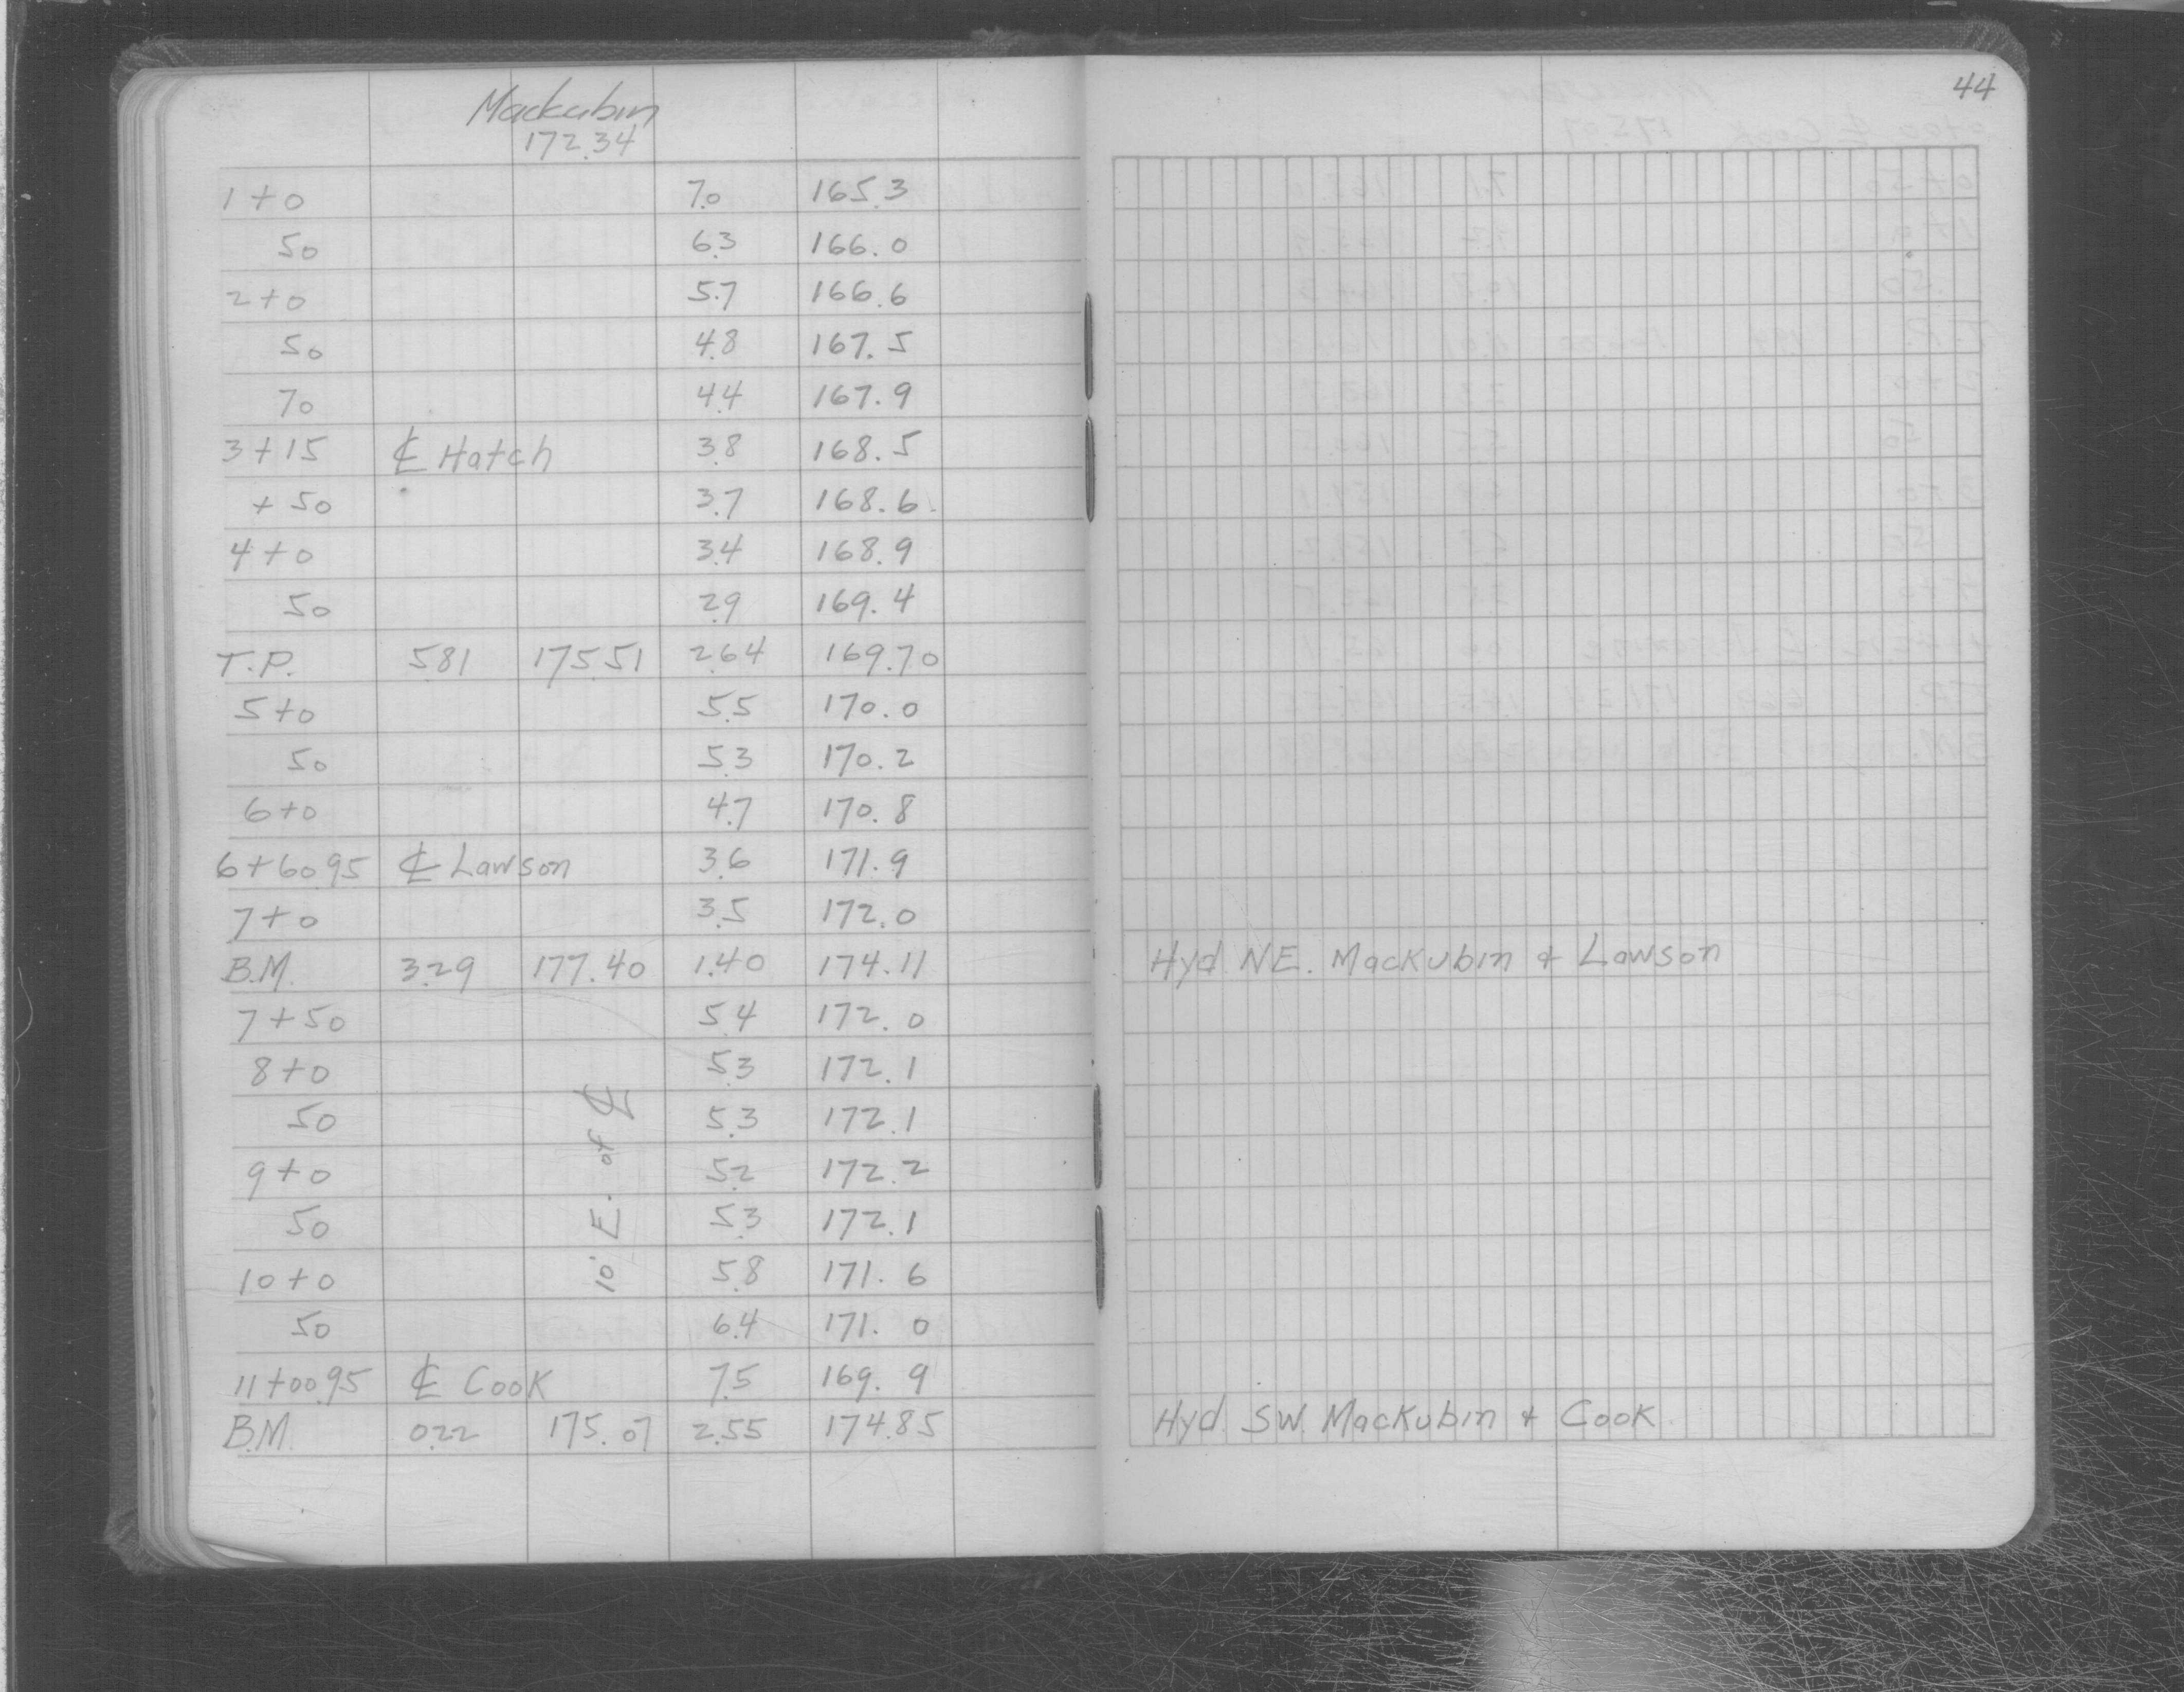 44
Mackubin
172.34
1+0 7.0 165.3
50 6.3 166.0
2+0 5.7 166.6
50 4.8 167.5
70 4.4 167.9
3+15 ℄ Hatch 3.8 168.5
+50 3.7 168.6
4+0 3.4 168.9
50 2.9 169.4
T.P. 5.81 175.51 2.64 169.70
5+0 5.5 170.0
50 5.3 170.2
6+0 4.7 170.8
6+60.95 ℄ Lawson 3.6 171.9
7+0 3.5 172.0
B.M. 3.29 177.40 1.40 174.11 Hyd. N.E. Mackubin + Lawson
7+50 5.4 172.0
8+0 5.3 172.1
50 5.3 172.1
9+0 5.2 172.2
50 5.3 172.1
10+0 5.8 171.6
50 6.4 171.0
10' E. of ℄
11+00.95 ℄ Cook 7.5 169.9
B.M. 0.22 175.07 2.55 174.85 Hyd. S.W. Mackubin + Cook